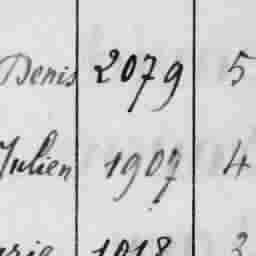 Denis 2079 5
Julien 1907 4
1018 3